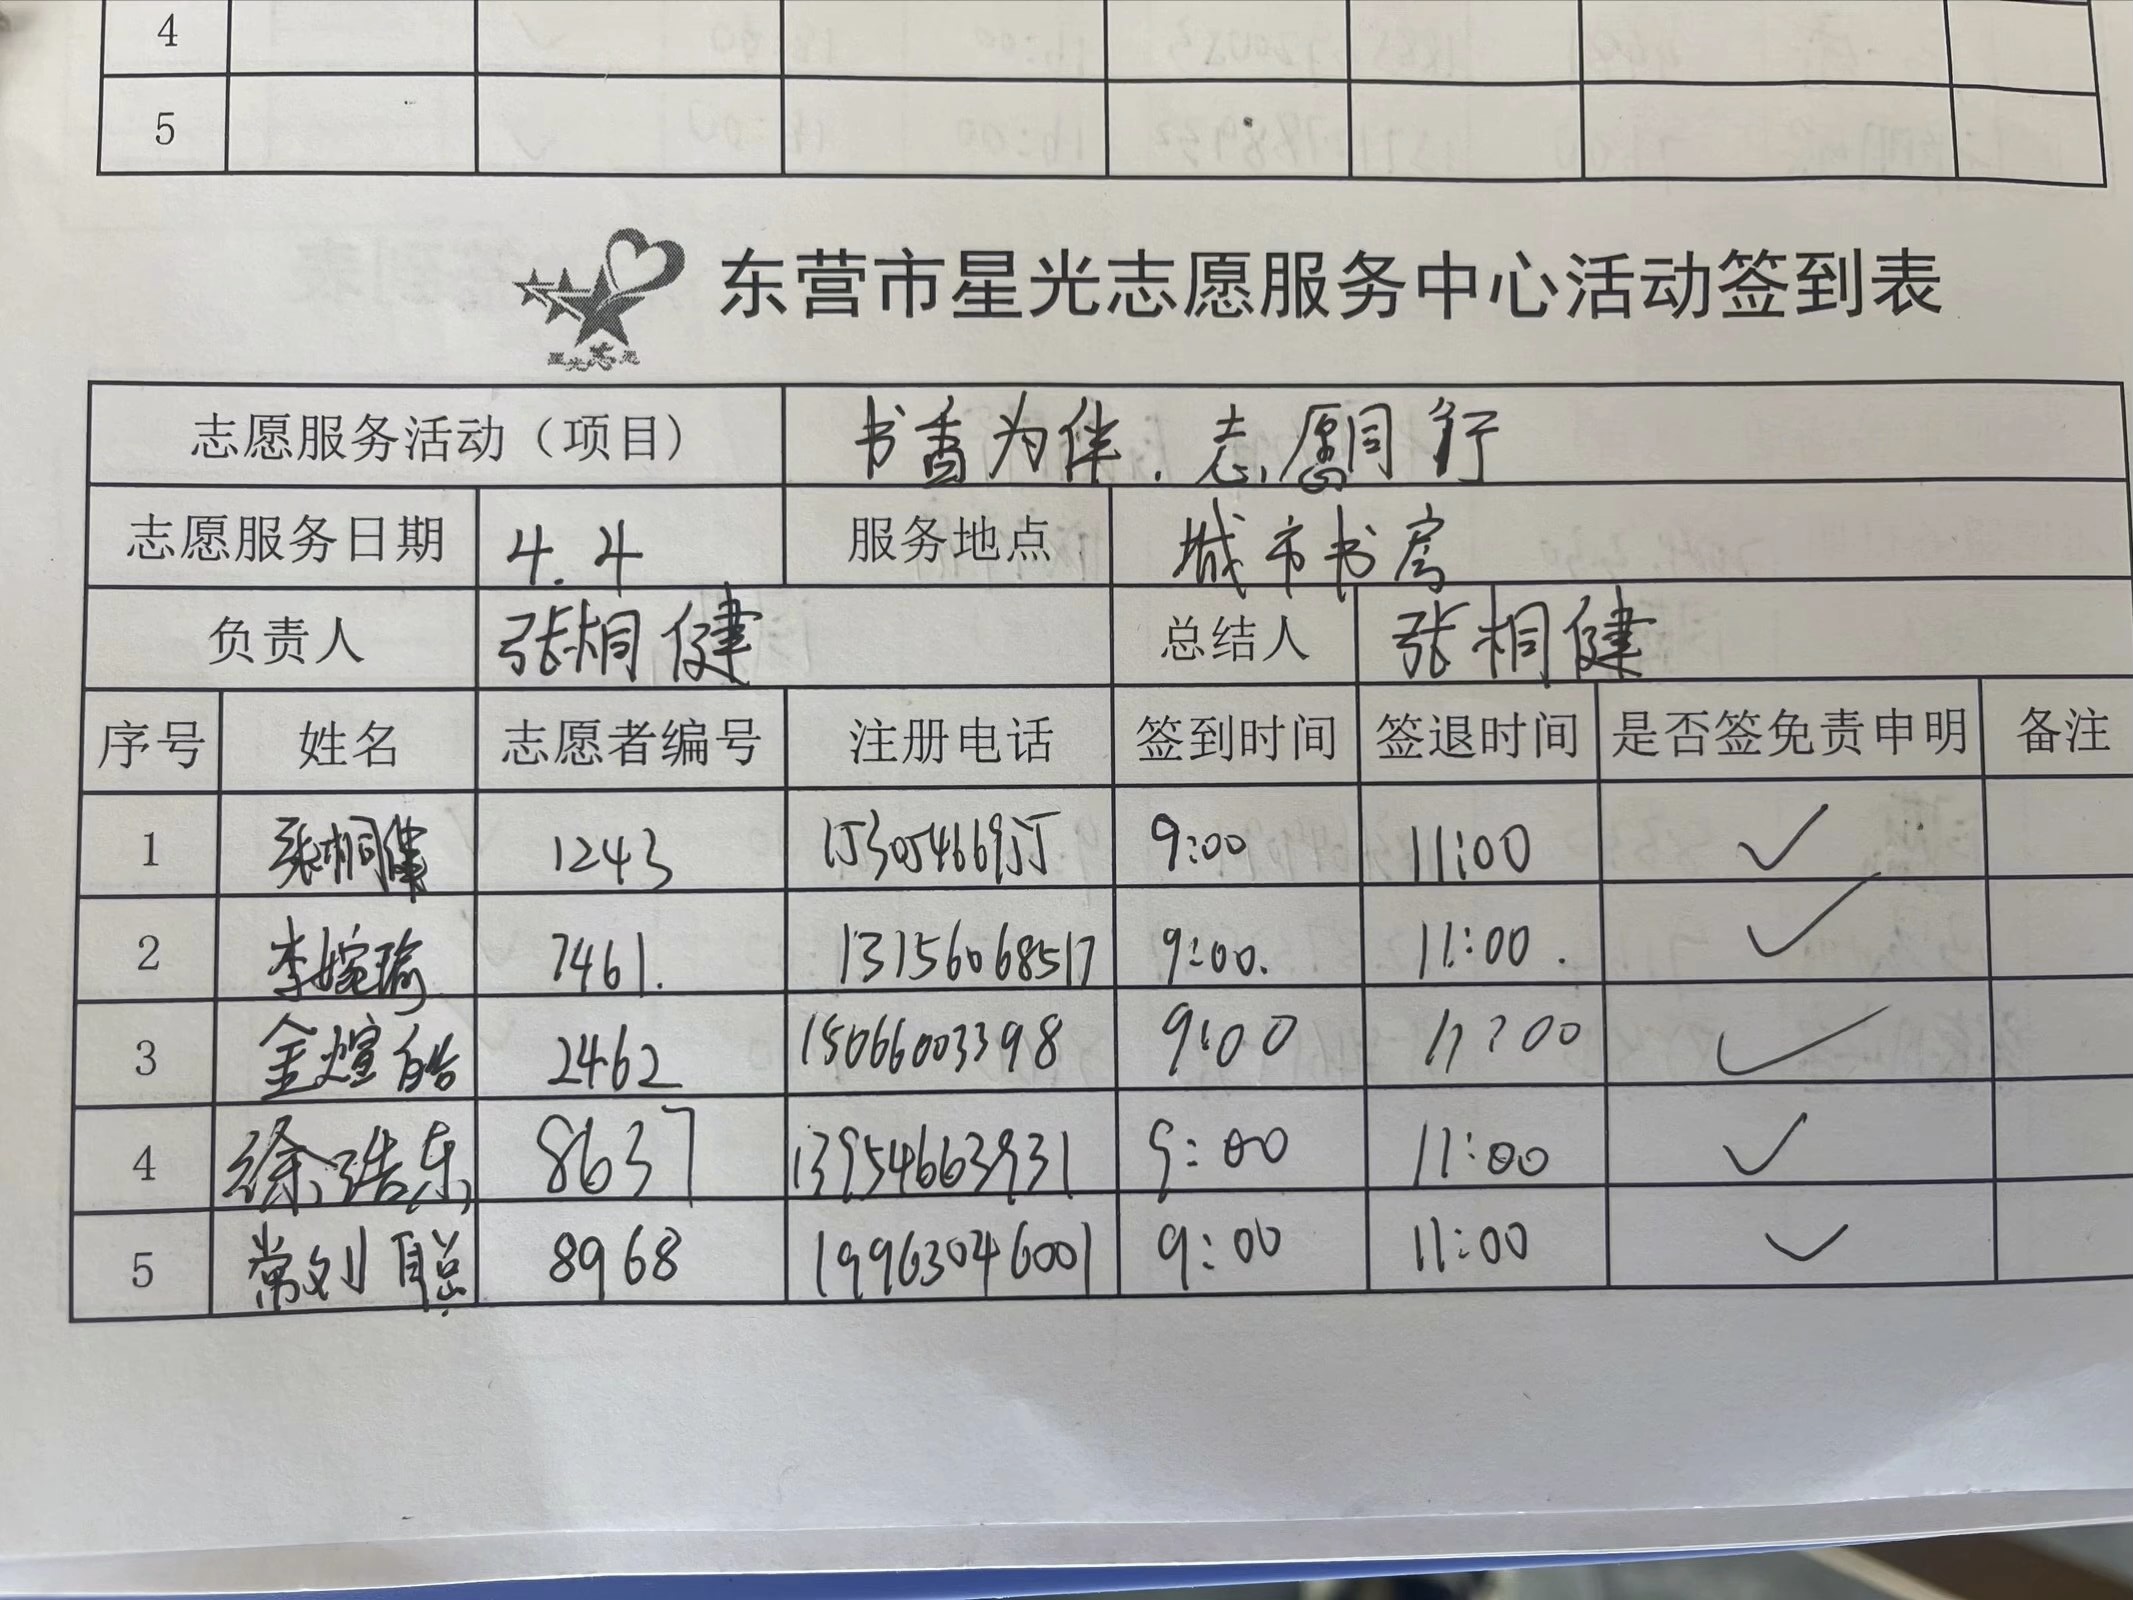 4
5
星光志愿
东营市星光志愿服务中心活动签到表
志愿服务活动（项目） 书香为伴.志愿同行
志愿服务日期 4.4 服务地点 城市书房
负责人 张桐健 总结人 张桐健
序号 姓名 志愿者编号 注册电话 签到时间 签退时间 是否签免责申明 备注
1 张桐健 1243 15305466955 9:00 11:00 ✓
2 李婉瑜 7461. 13156068517 9:00. 11:00. ✓
3 金煊皓 2462 15066003398 9:00 11:00 ✓
4 徐浩东 8637 13954663931 9:00 11:00 ✓
5 常刘聪 8968 19963046001 9:00 11:00 ✓